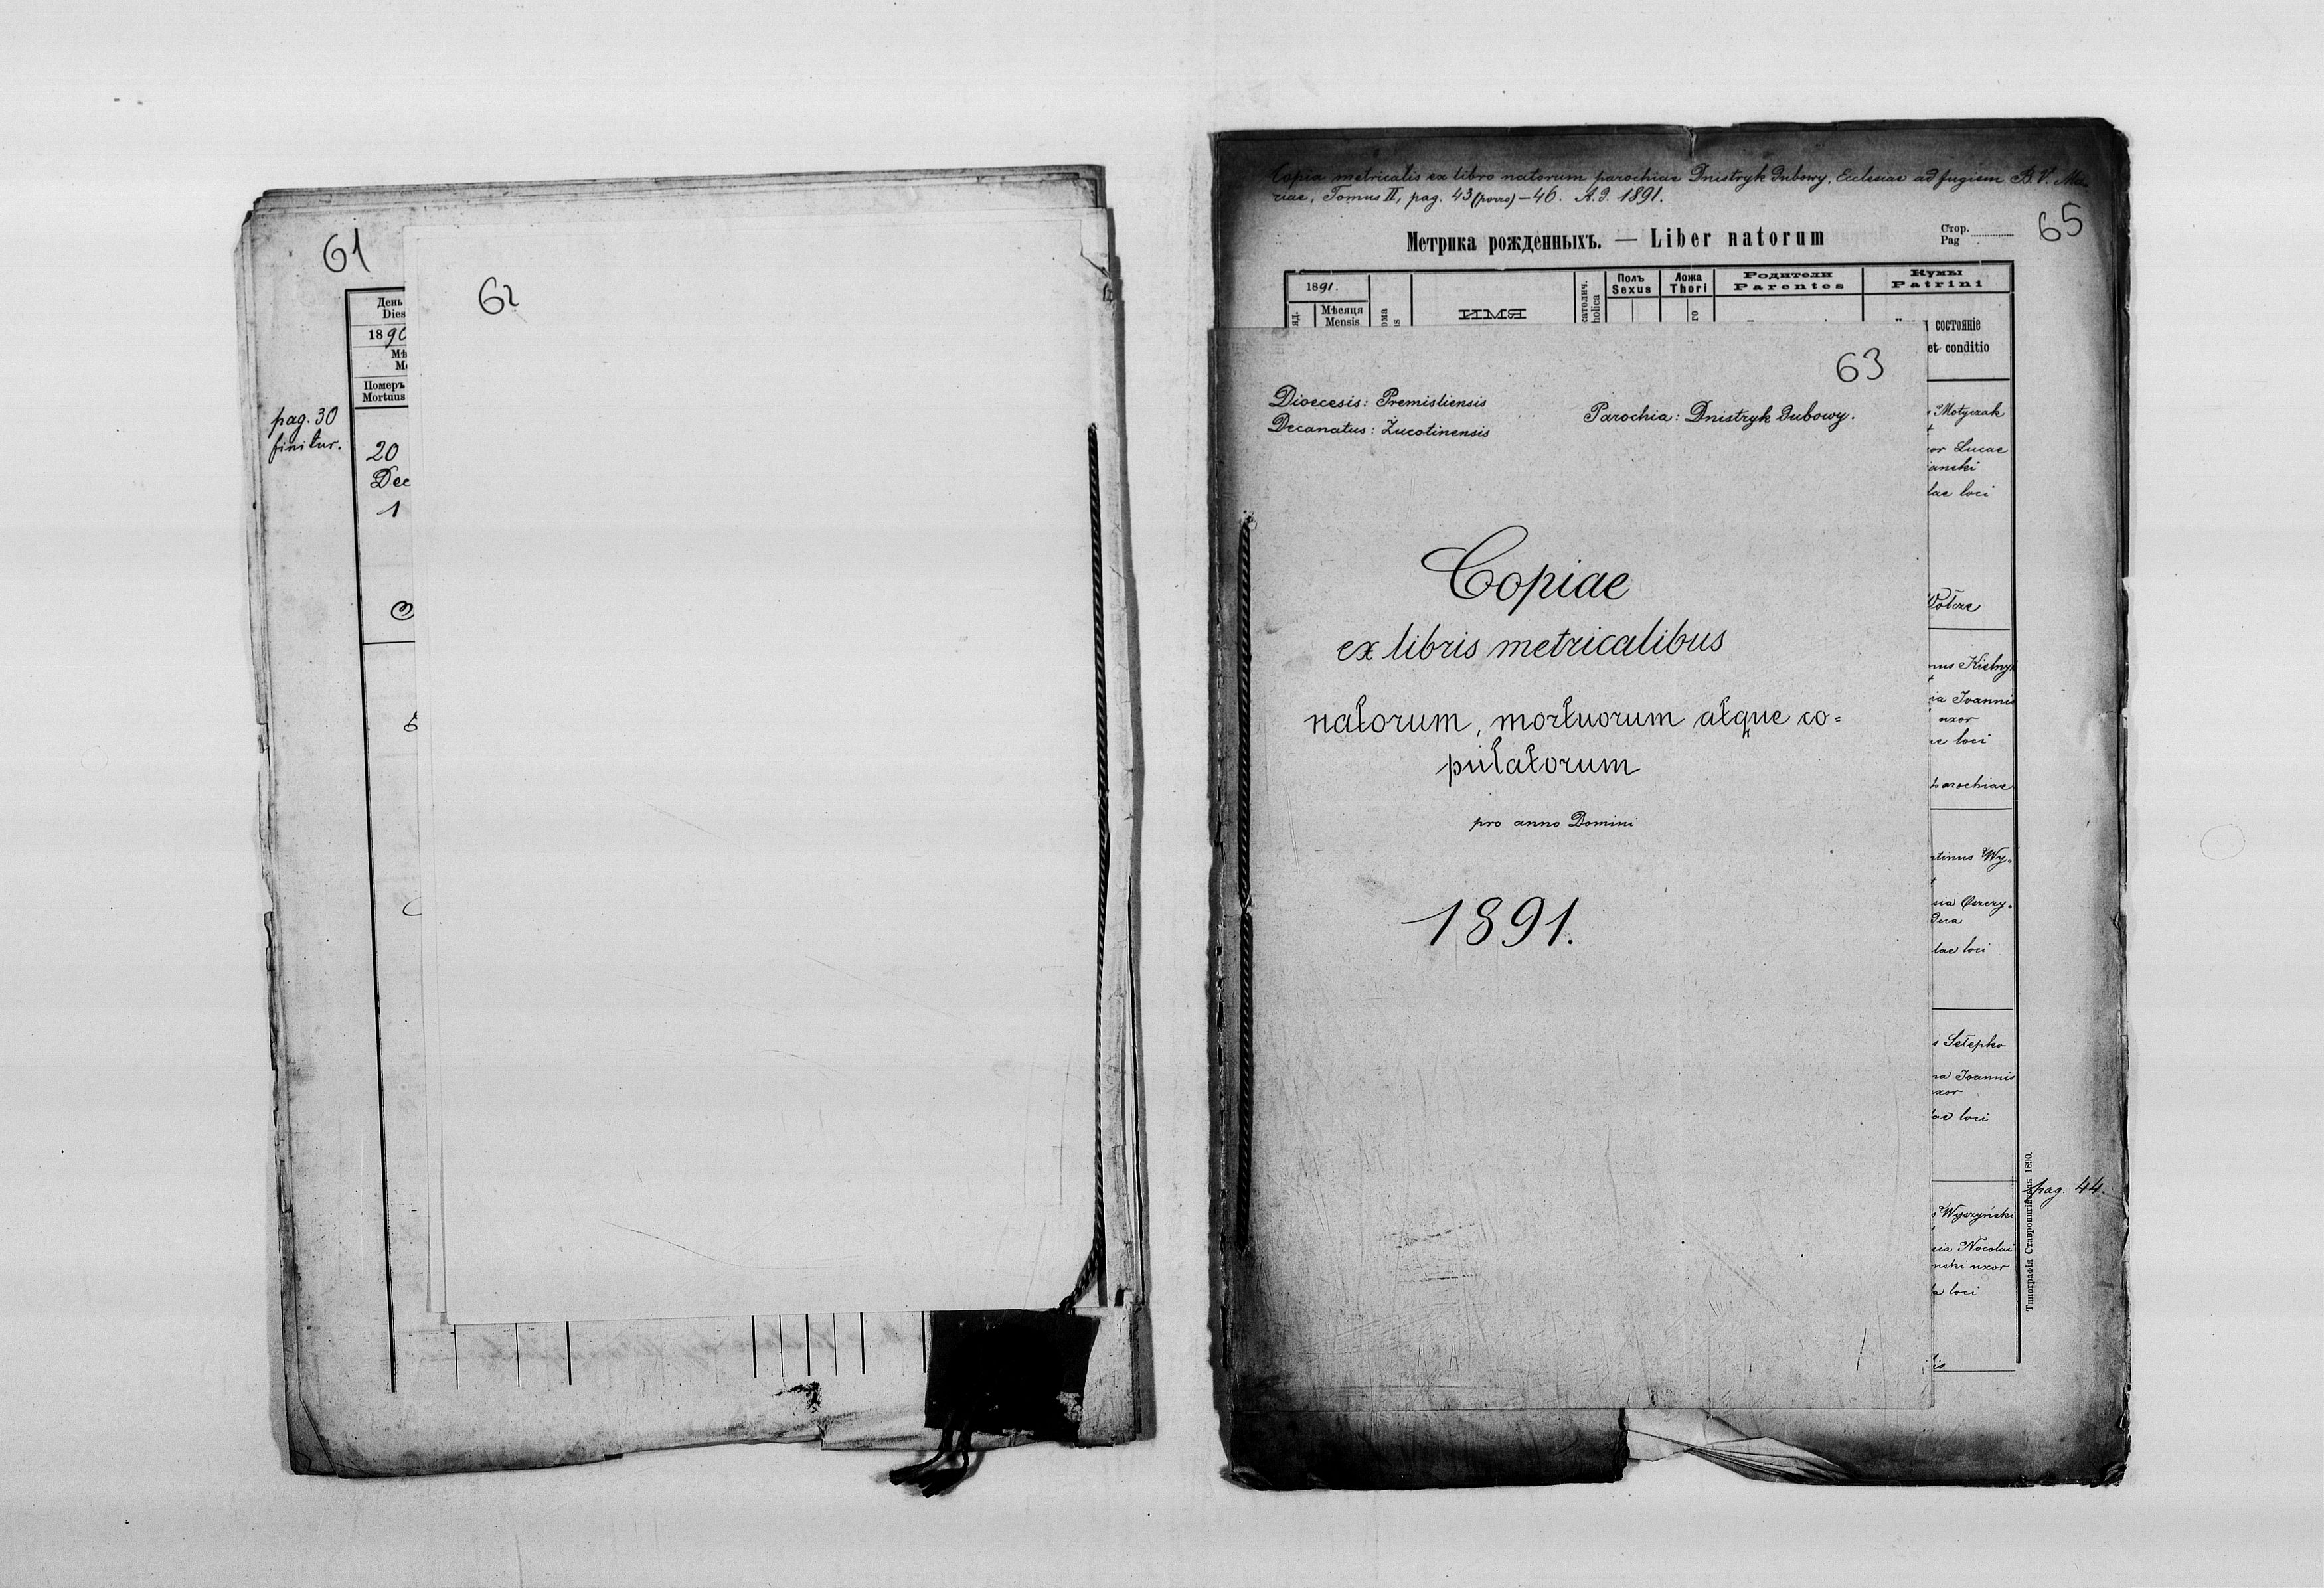 61
День
Dies
1890
Померъ
Mortuus
pag. 30
finitur.
20
Dec
1
62
Copia metricalis ex libro natorum parochiae Dnistryk Dubowy, Ecclesiae ad fugiem B. V. Ma-
riae, Tomus II, pag. 43 (porro) – 46. A.D. 1891.
65
Метрика рожденныхъ. — Liber natorum
Стор.
Pag
1891.
Мѣсяця
Mensis
ИМЯ
Полъ
Sexus
Ложа
Thori
Родители
Parentes
Кумы
Patrini
состоянiе
et conditio
63
Dioecesis: Premisliensis
Decanatus: Żucotinensis
Parochia: Dnistryk Dubowy.
Copiae
ex libris metricalibus
natorum, mortuorum atque co=
pulatorum
pro anno Domini
1891.
Motyczak
Lucae
loci
Kielny
Joannis
uxor
loci
parochiae
Wy-
loci
Setepko
Joannis
loci
Wyszyński
Nocolai
uxor
loci
pag. 44.
Типографія Ставропигійская 1890.